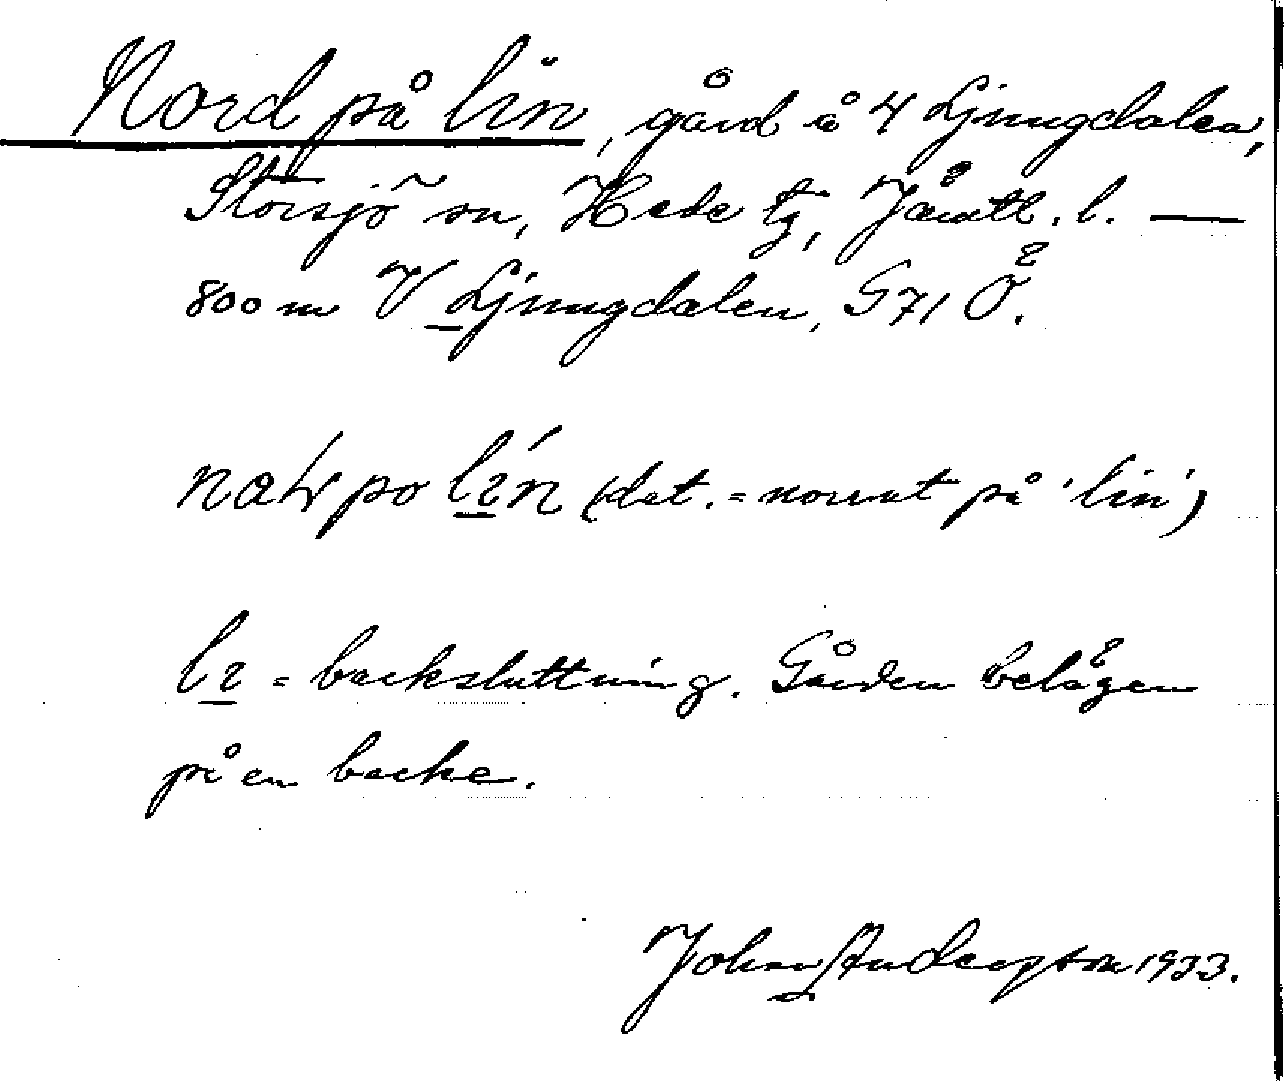 Nord på lin, gård å 4 Ljungdalen,
Storsjö sn, Hede tg, Jämtl. l. —
800 m V Ljungdalen, G71 Ö.
po lín (dat. = norrut på 'lin')
= backsluttning. Gården belägen
på en backe.
Johan Anderzson 1933.